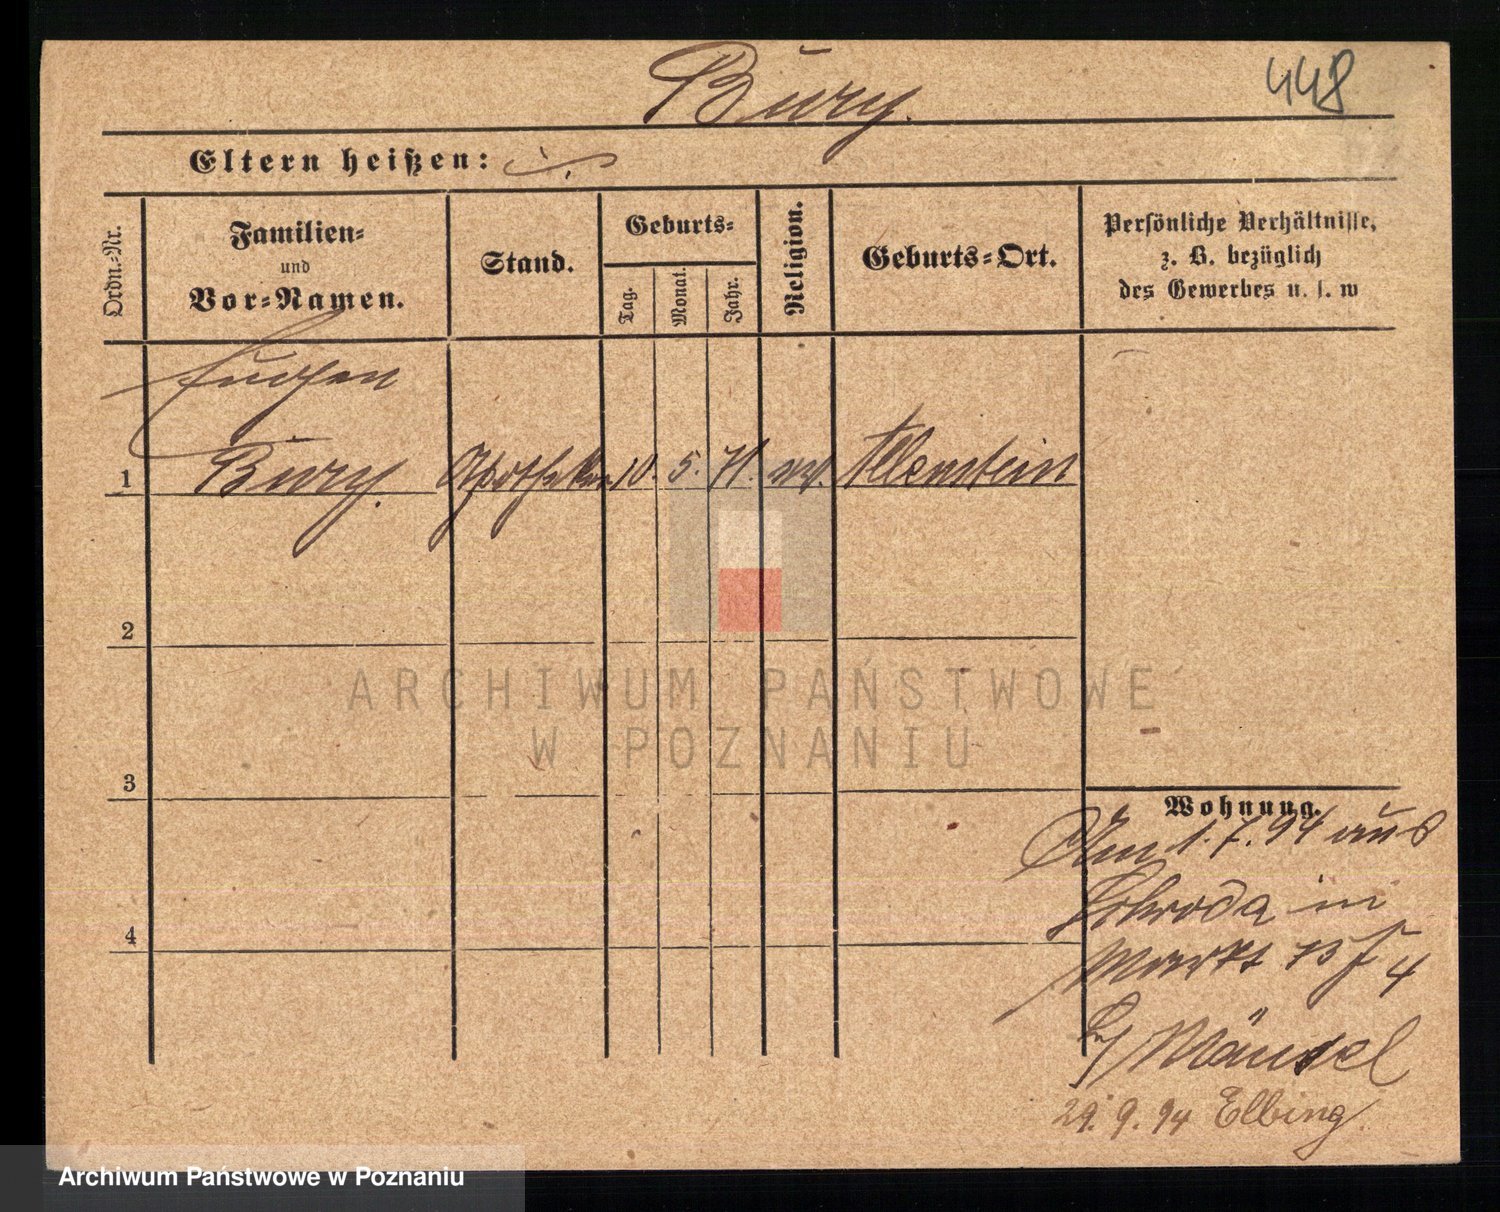 Bury.
448
Eltern heißen:
Ordn.-Nr.
Familien-
und
Vor-Namen.
Stand.
Geburts-
Tag.
Monat.
Jahr.
Religion.
Geburts-Ort.
Persönliche Verhältnisse,
z. B. bezüglich
des Gewerbes u. s. w
Eugen
1 Bury. Apotheker 10. 5. 71. ev. Allenstein
2
3
4
Wohnung.
Am 1. 7. 94 aus
Schroda in
Markt 75 4
b/ Mänsel
29. 9. 94 Elbing.
ARCHIWUM PAŃSTWOWE
W POZNANIU
Archiwum Państwowe w Poznaniu